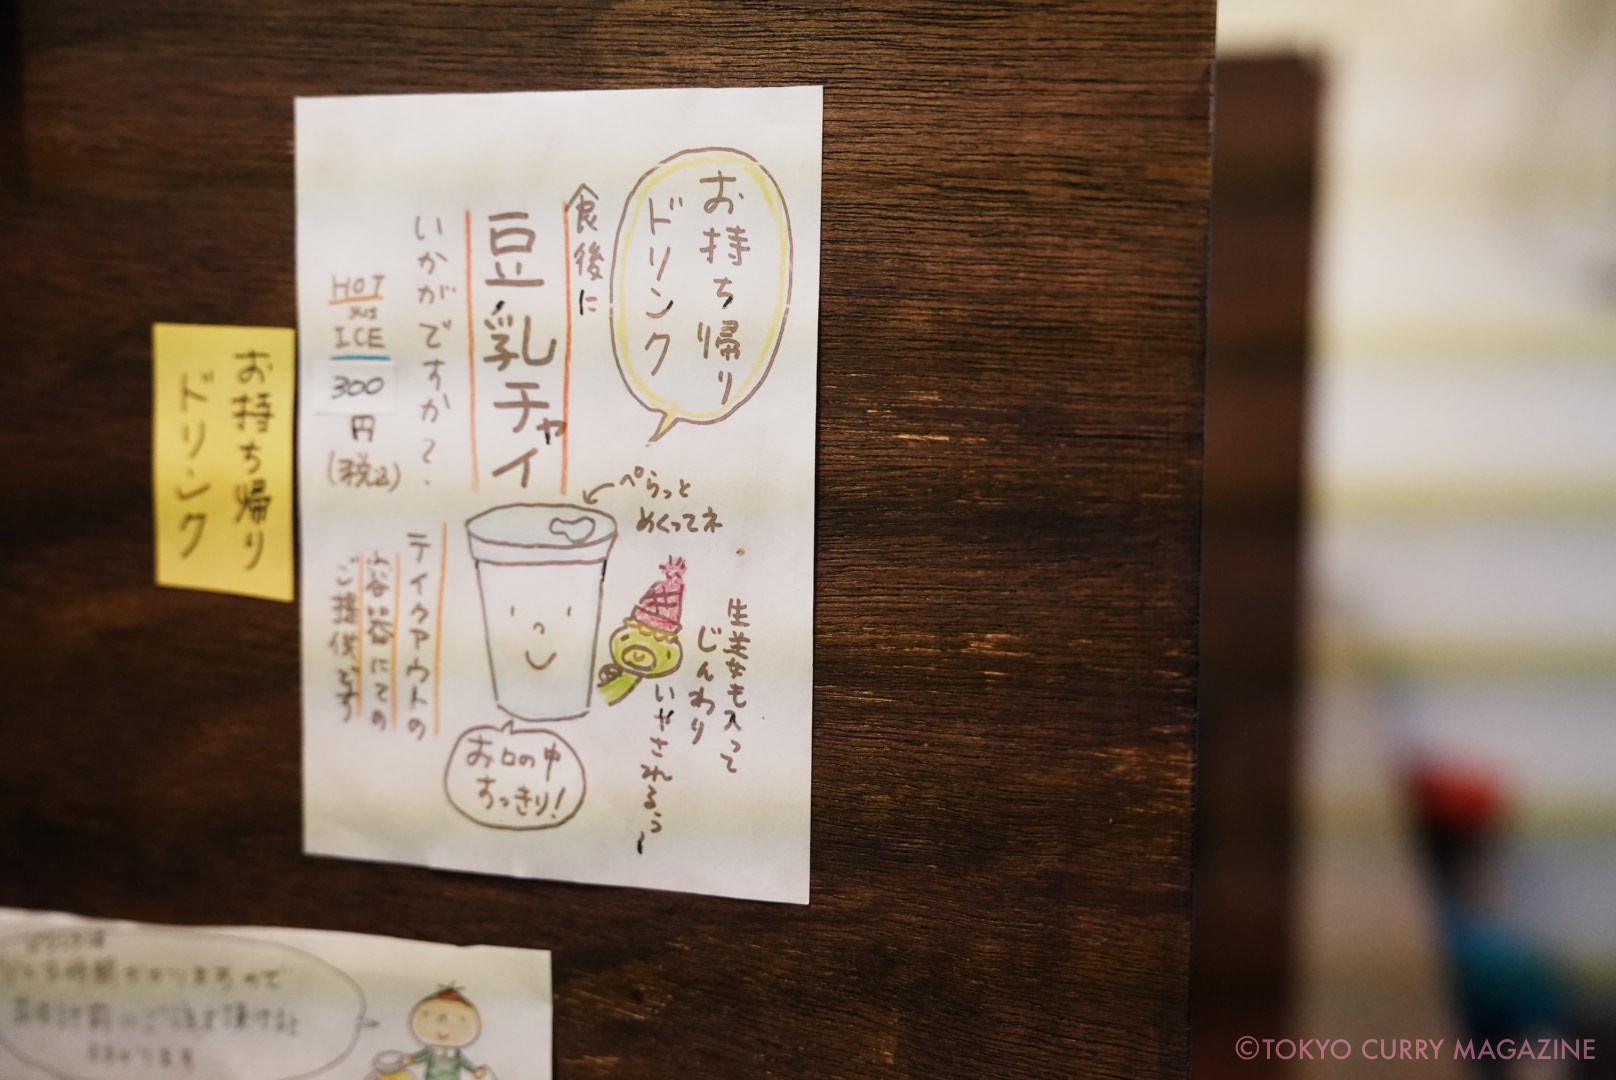 お持ち帰り
ドリンク
食後に
豆乳チャイ
いかがですか?
HOT
又は
ICE
300
円
(税込)
ぺらっと
めくってネ
生姜も入って
じんわり
いやされるぅ〜
お口の中
すっきり!
テイクアウトの
容器にての
ご提供です
お持ち帰り
ドリンク
©TOKYO CURRY MAGAZINE